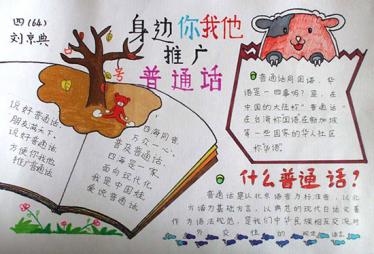 四(64)
刘京典
身边你我他
推广
普通话
说好普通话,
朋友满天下,
说好普通话,
方便你我他,
推广普通话
四海同音,
万众一心,
普及普通话,
四海是一家,
面向现代化,
我是中国娃,
爱说普通话
普通话同国语、华
语是一回事吗?是,在
中国的大陆称"普通话"
在台湾称国语在新加坡
等一些国家的华人社区
称华语。
什么普通话?
普通话是以北京语音为标准音,以北
方语为基础方言,以典范的现代白话文著
作为语法规范,是我们中华民族相互交流对
外交往的